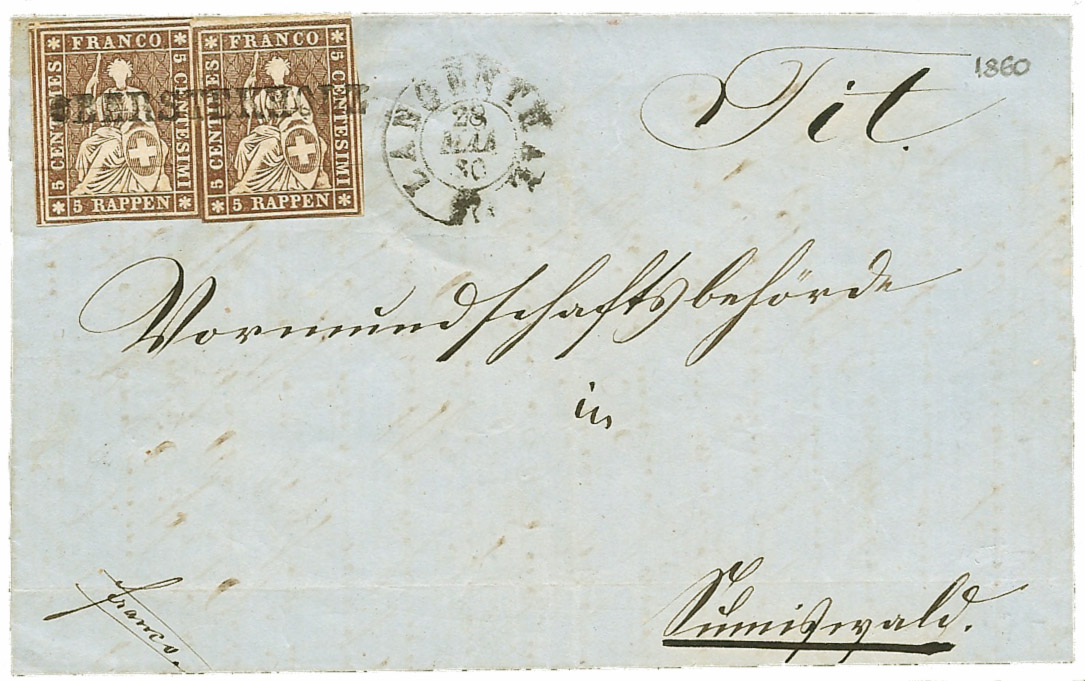 FRANCO
5 CENTIMES
5 CENTESIMI
5 RAPPEN
FRANCO
5 CENTIMES
5 CENTESIMI
5 RAPPEN
LANGENTHAL
28
1860
Tit.
Vormundschaftsbehörde
in
Sumiswald.
franco.